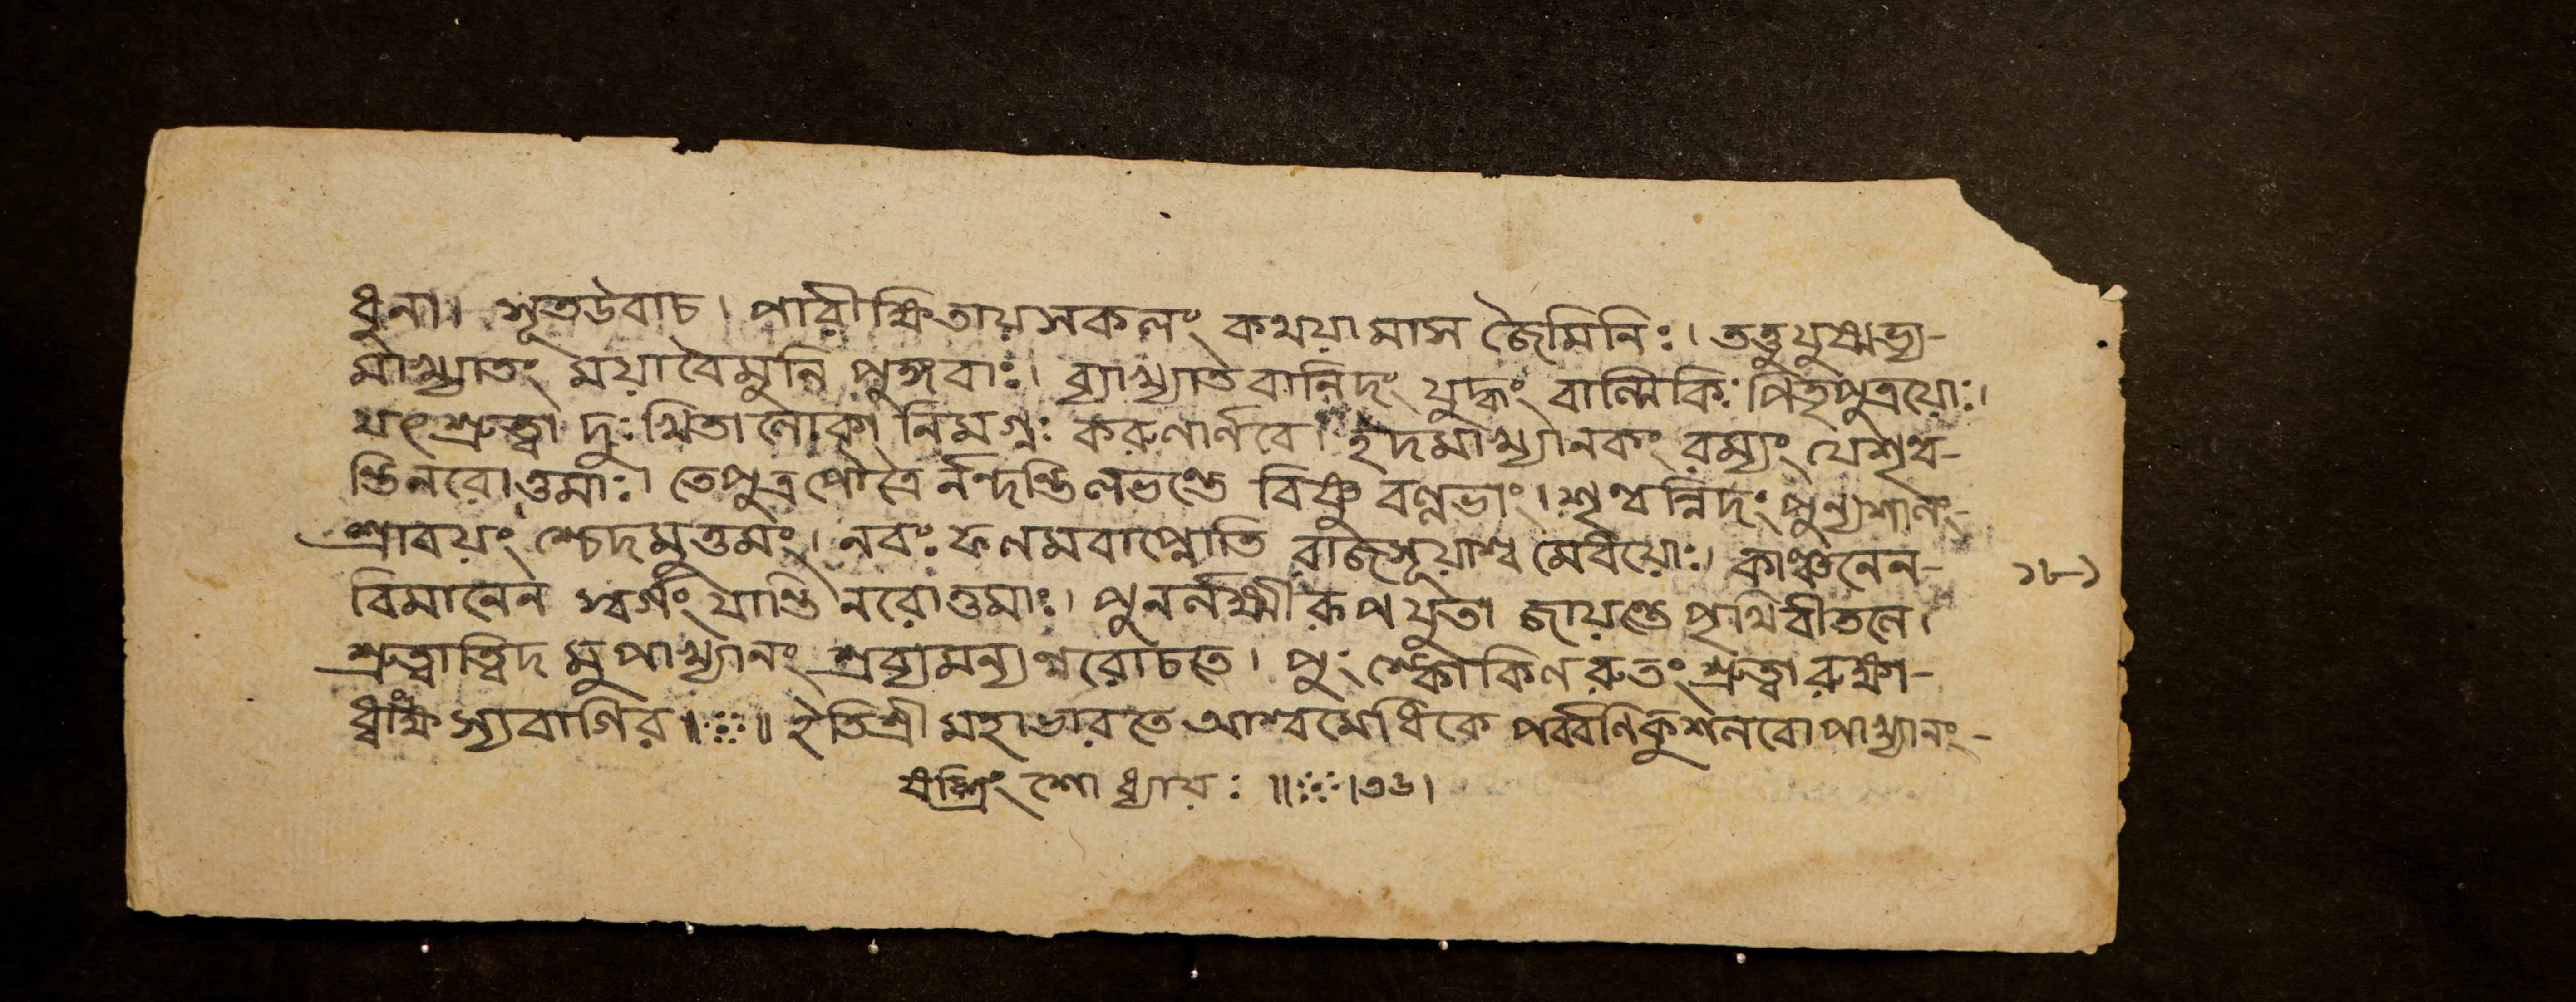 ধুনা। সূতউবাচ। পারীক্ষিতায়সকলং কথয়ামাস জৈমিনিঃ। তত্তুযুষ্মাভ্য-
মাখ্যাতং ময়াবৈমুনি পুঙ্গবাঃ। ব্যাখ্যাতবানিদং যুদ্ধং বাল্মিকিঃ পিতৃপুত্রয়োঃ।
যৎশ্রুত্বা দুঃখিতালোকা নিমগ্নঃ করুণার্ণবে। ইদমাখ্যানকং রম্যং যেশৃণ্ব-
ন্তিনরোত্তমাঃ। তেপুত্রপৌত্রৈর্নন্দন্তিলভন্তে বিষ্ণু বল্লভাং। শৃণ্বন্নিদং পুন্যশালং-
শ্রাবয়ং শ্চেদমুত্তমং। নরঃ ফলমবাপ্নোতি রাজসূয়াশ্ব মেধয়োঃ। কাঞ্চনেন-
বিমানেন স্বর্গং যান্তি নরোত্তমাঃ। পুনর্লক্ষ্মী রূপযুতা জায়ন্তে পৃথিবীতলে।
১৮১
শ্রুত্বাত্বিদ মুপাখ্যানং শ্রব্যমন্যন্নরোচতে। পুং স্কোকিলরুতং শ্রুত্বা রুক্ষা-
ধ্বাংক্ষ স্যবাগির॥ ॥ ইতিশ্রী মহাভারতে আশ্বমেধিকে পর্ব্বণিকুশলবোপাখ্যানং-
ষট্ত্রিং শোধ্যায়ঃ ॥ ।৩৬।